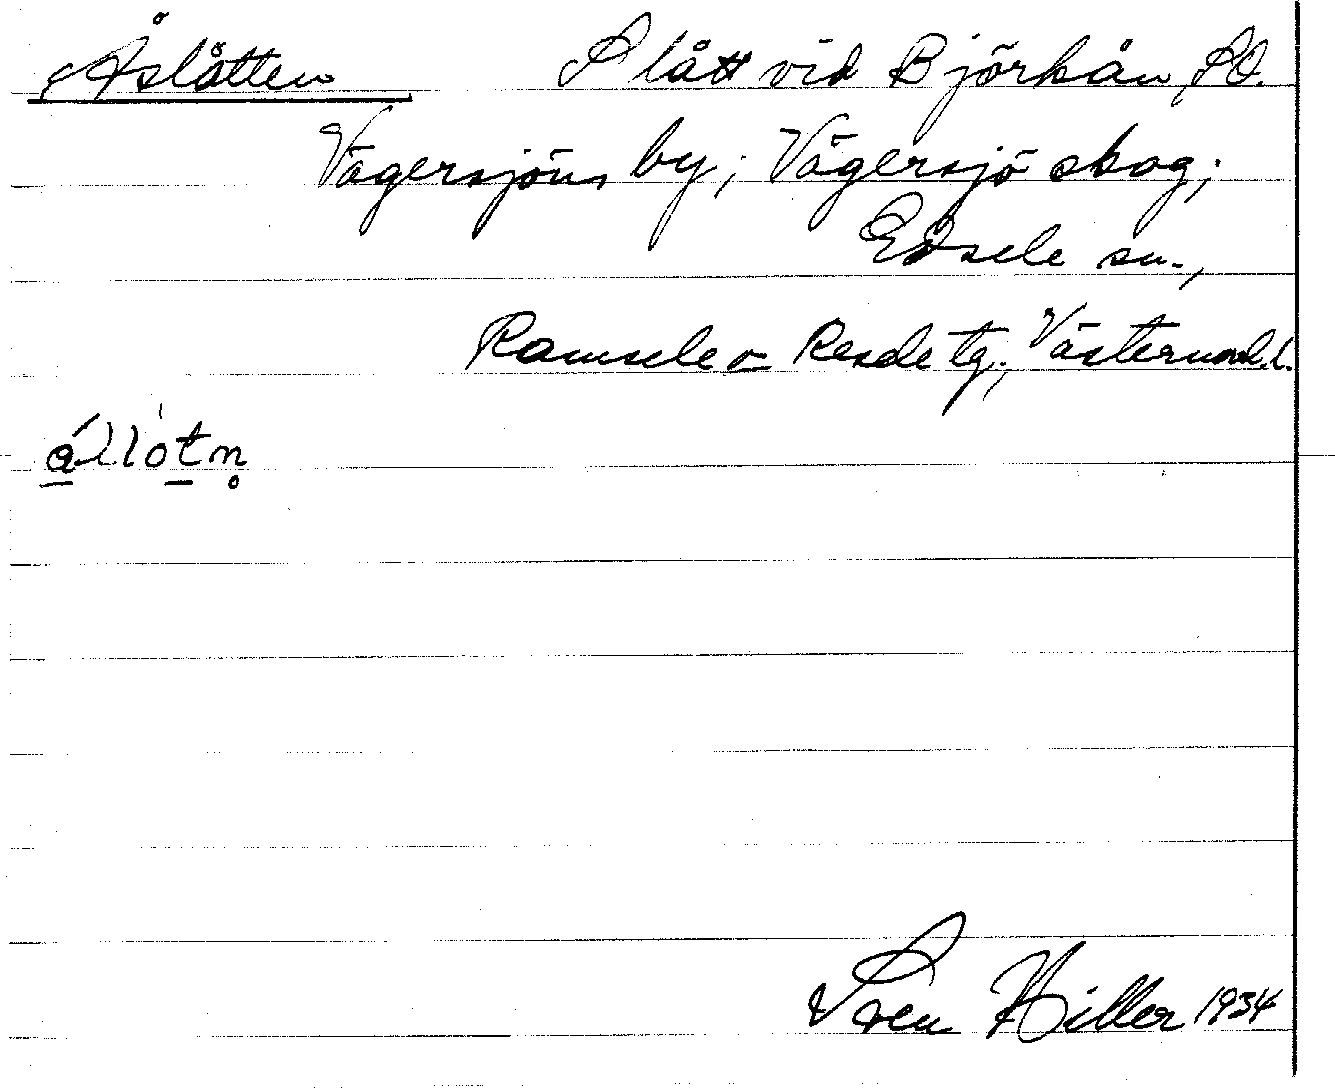 Åslåtten Slått vid Björkån, SO.
Vägersjöns by; Vägersjö skog;
Edsele sn.,
Ramsele o Resele tg.; Västernorrl. l.
ållotn̥
Sven Hiller 1934